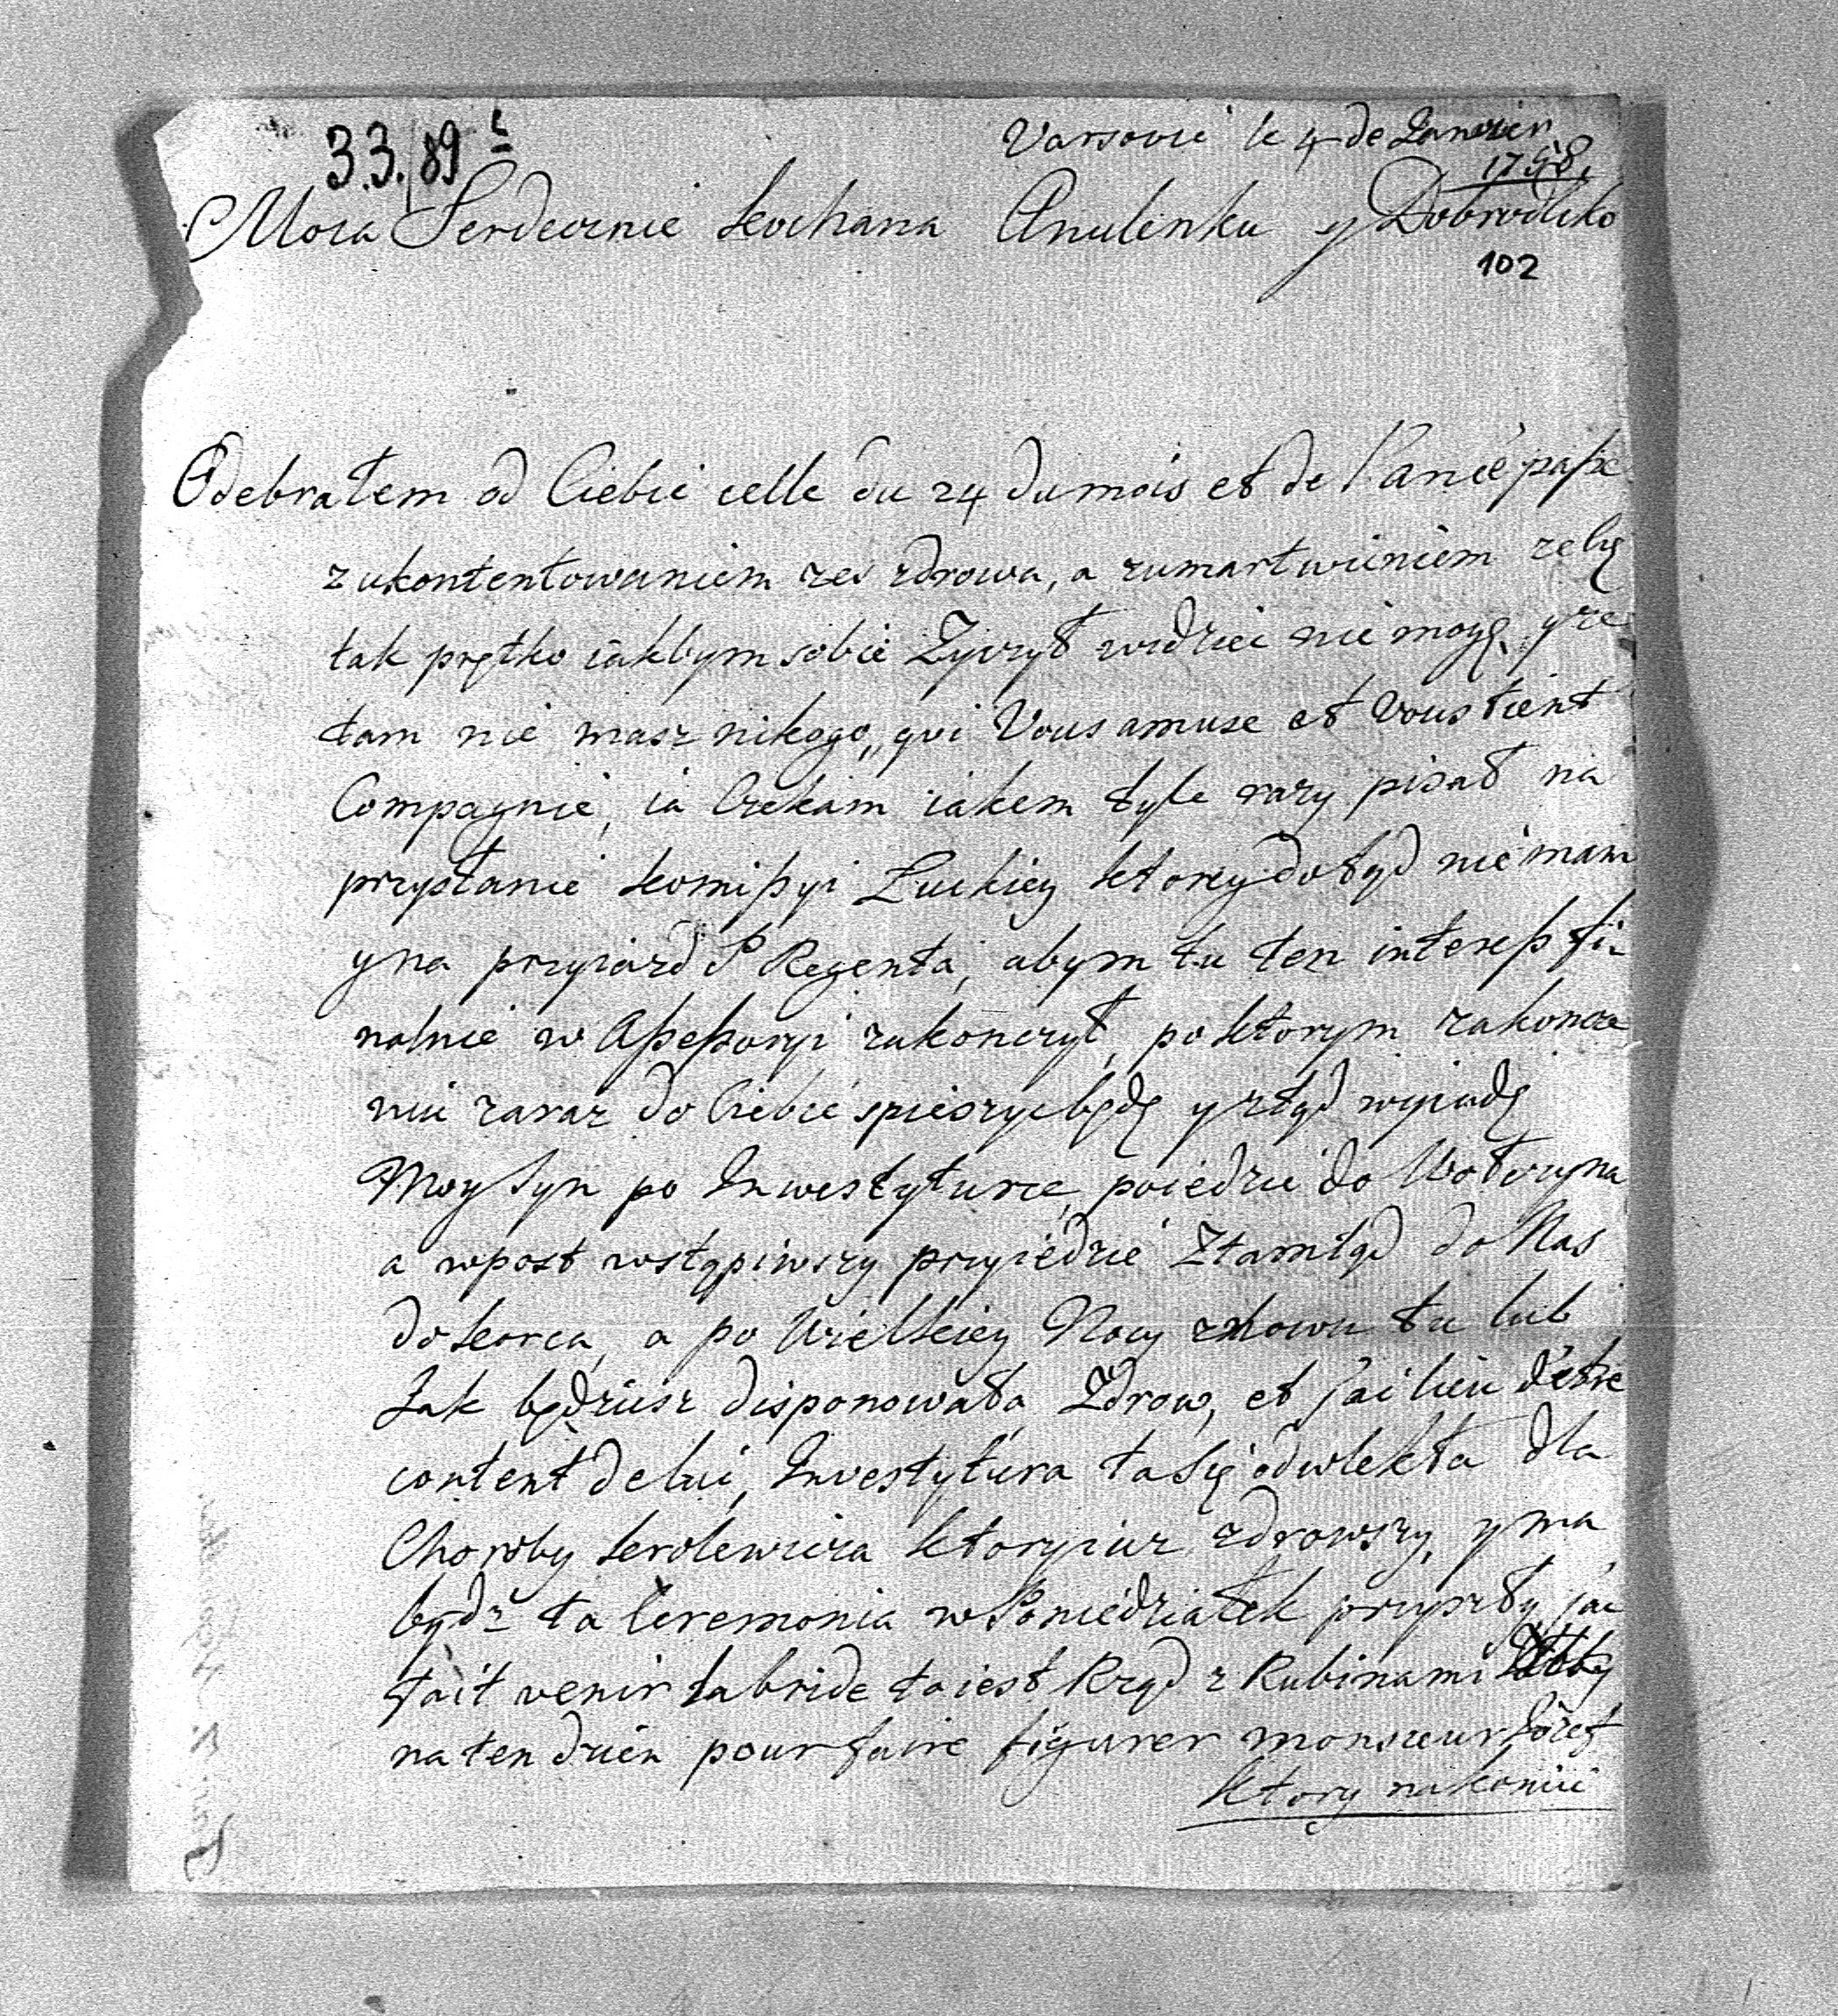 33./89
Varsovie le 4 de Janvier
1758.
Moia Serdecznie kochana Anulenku y Dobrodko
102
Odebrałem od Ciebie celle du 24 du mois et de l'aneé passe
z ukontentowaniem zes zdrowa, a zumartwieniem ze Cię
tak prętko iakbym sobie Zyczył widziec nie mogę, y ze
tam nie masz nikogo, qui Vous amuse et Vous tient
Compagnie, ia Czekam iakem tyle razy pisał na
przysłanie komissyi Łuckiey ktorey dotąd nie mam
y na przyiazd P Regenta, abym tu ten interess fi-
nalnie w Assessoryi zakonczył, po ktorym zakoncze
niu zaraz do Ciebie spieszyc będę y ztąd wyiadę
Moy Syn po Inwestyturze, poiedzie do Wołczyna
a wpost wstąpiwszy przyiedzie Ztamtąd do Nas
do korca, a po Wielkiey Nocy znowu tu lub
Jak będziesz disponowała, Zdrow, et j'ai lieu d'etre
content de lui, Investytura ta Się odwlekła dla
Choroby krolewicza ktory iuz zdrowszy, y ma
bydz ta Ceremonia w Poniedziałek przyszły, j'ai
fait venir la bride to iest Rząd z Rubinami
na ten dzien pour faire figurer monsieur Józef
ktory na koniu